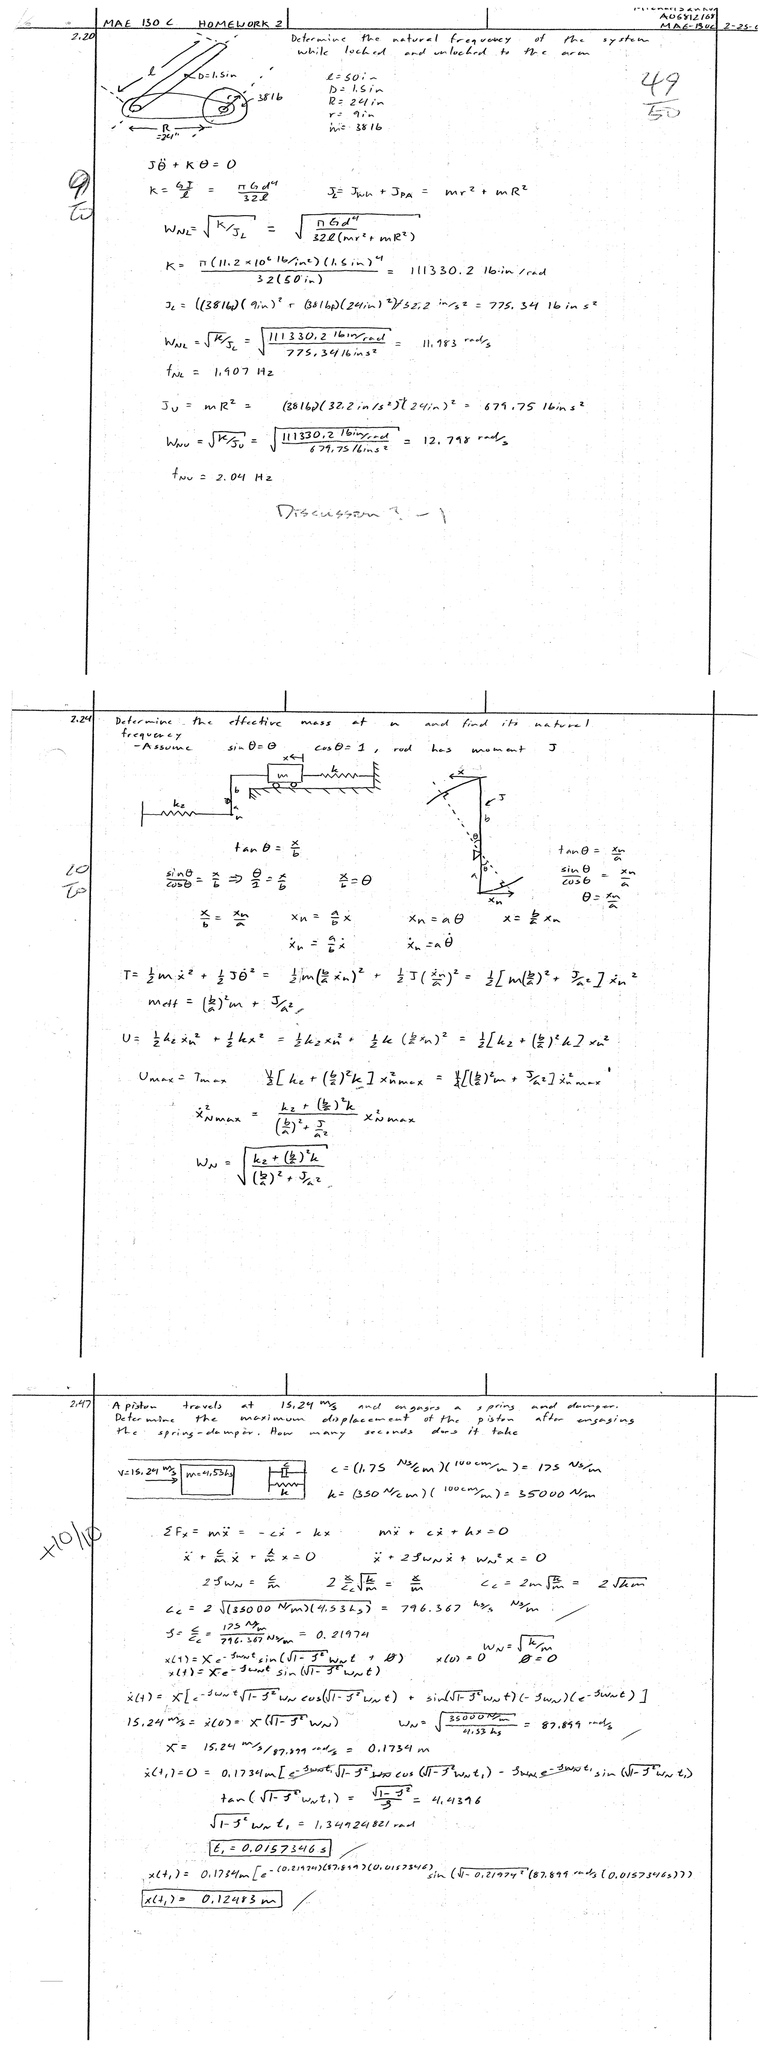 MAE 130 C HOMEWORK 2
A06812168
MAE-130C 2-25-
2.20 Determine the natural frequency of the system
while locked and unlocked to the arm
49/50
l
D=1.5in
r
38lb
R
=24"
l=50in
D=1.5in
R=24in
r=9in
m=38lb
Jθ̈ + Kθ = 0
9/10
K = GJ/l = πGd⁴/32l J_L = J_WH + J_PA = mr² + mR²
W_NL = √(K/J_L) = √(πGd⁴/32l(mr²+mR²))
K = π(11.2×10⁶ lb/in²)(1.5in)⁴/32(50in) = 111330.2 lb·in/rad
J_L = ((38lb)(9in)² + (38lb)(24in)²)/32.2 in/s² = 775.34 lb in s²
W_NL = √(K/J_L) = √(111330.2 lbin/rad / 775.34 lbins²) = 11.983 rad/s
f_NL = 1.907 Hz
J_U = mR² = (38lb)(32.2 in/s²)(24in)² = 679.75 lbins²
W_NU = √(K/J_U) = √(111330.2 lbin/rad / 679.75 lbins²) = 12.798 rad/s
f_NU = 2.04 Hz
Discussion? -1
2.24 Determine the effective mass at n and find its natural
frequency
-Assume sinθ=θ cosθ=1, rod has moment J
x
m
k
b
a
n
k₂
x
J
b
θ
a
x_n
10/10
tanθ = x/b
sinθ/cosθ = x/b ⇒ θ/1 = x/b x/b = θ
tanθ = x_n/a
sinθ/cosθ = x_n/a
θ = x_n/a
x/b = x_n/a x_n = a/b x x_n = aθ x = b/a x_n
ẋ_n = a/b ẋ ẋ_n = aθ̇
T = ½mẋ² + ½Jθ̇² = ½m(b/a ẋ_n)² + ½J(ẋ_n/a)² = ½[m(b/a)² + J/a²]ẋ_n²
meff = (b/a)²m + J/a²
U = ½k₂x_n² + ½kx² = ½k₂x_n² + ½k(b/a x_n)² = ½[k₂ + (b/a)²k]x_n²
Umax = Tmax ½[k₂ + (b/a)²k]x²nmax = ½[(b/a)²m + J/a²]ẋ²nmax
ẋ²Nmax = (k₂ + (b/a)²k)/((b/a)² + J/a²) x²Nmax
W_N = √((k₂ + (b/a)²k)/((b/a)² + J/a²))
2.47 A piston travels at 15.24 m/s and engages a spring and damper.
Determine the maximum displacement of the piston after engaging
the spring-damper. How many seconds does it take
V=15.24 m/s
m=4.53kg
c
k
c = (1.75 Ns/cm)(100cm/m) = 175 Ns/m
k = (350 N/cm)(100cm/m) = 35000 N/m
+10/10
ΣFx = mẍ = -cẋ - kx mẍ + cẋ + kx = 0
ẍ + c/m ẋ + k/m x = 0 ẍ + 2ζW_Nẋ + W_N²x = 0
2ζW_N = c/m 2 c/c_c √(k/m) = c/m c_c = 2m√(k/m) = 2√(km)
c_c = 2√((35000 N/m)(4.53kg)) = 796.367 kg/s Ns/m
ζ = c/c_c = 175 Ns/m / 796.367 Ns/m = 0.21974
W_N = √(k/m)
x(t) = Xe^(-ζW_N t) sin(√(1-ζ²)W_N t + Ø) x(0)=0 Ø=0
x(t) = Xe^(-ζW_N t) sin(√(1-ζ²)W_N t)
ẋ(t) = X[e^(-ζW_N t)√(1-ζ²)W_N cos(√(1-ζ²)W_N t) + sin(√(1-ζ²)W_N t)(-ζW_N)(e^(-ζW_N t)]
15.24 m/s = ẋ(0) = X(√(1-ζ²)W_N) W_N = √(35000N/m / 4.53kg) = 87.899 rad/s
X = 15.24 m/s/87.899 rad/s = 0.1734 m
ẋ(t₁) = 0 = 0.1734m[e^(-ζW_N t₁)√(1-ζ²)W_N cos(√(1-ζ²)W_N t₁) - ζW_N e^(-ζW_N t₁) sin(√(1-ζ²)W_N t₁)
tan(√(1-ζ²)W_N t₁) = √(1-ζ²)/ζ = 4.4396
√(1-ζ²)W_N t₁ = 1.34924821 rad
t₁ = 0.0157346 s
x(t₁) = 0.1734m[e^(-(0.21974)(87.899)(0.0157346)) sin(√(1-0.21974²)(87.899 rad/s(0.0157346s)))
x(t₁) = 0.12483 m